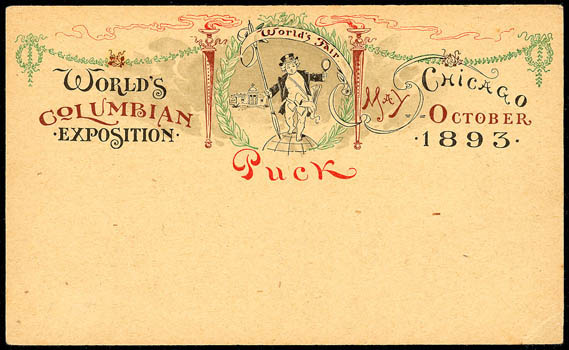 World's Fair
WORLD'S
COLUMBIAN
·EXPOSITION·
MAY
CHICAGO
-OCTOBER
·1893·
PUCK